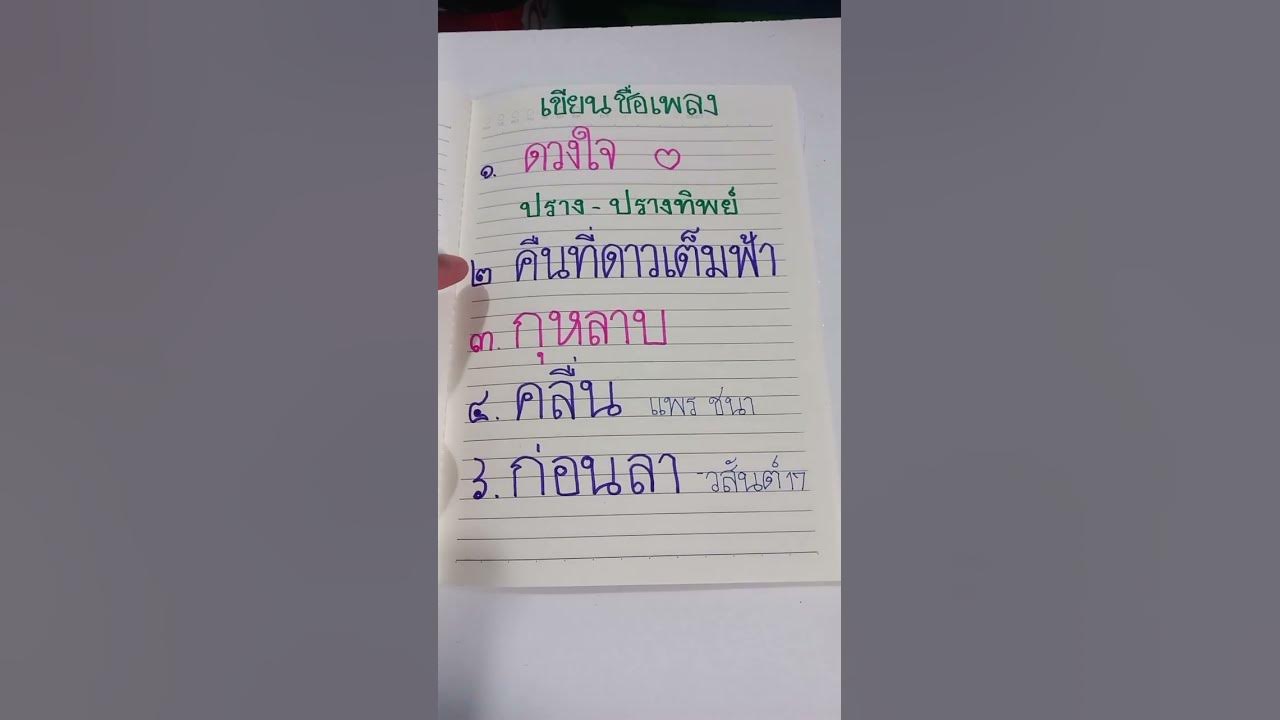 เขียนชื่อเพลง
๑. ดวงใจ ♡
ปราง - ปรางทิพย์
๒ คืนที่ดาวเต็มฟ้า
๓. กุหลาบ
๔. คลื่น แพร ชนา
ก่อนลา - วสันต์ 17